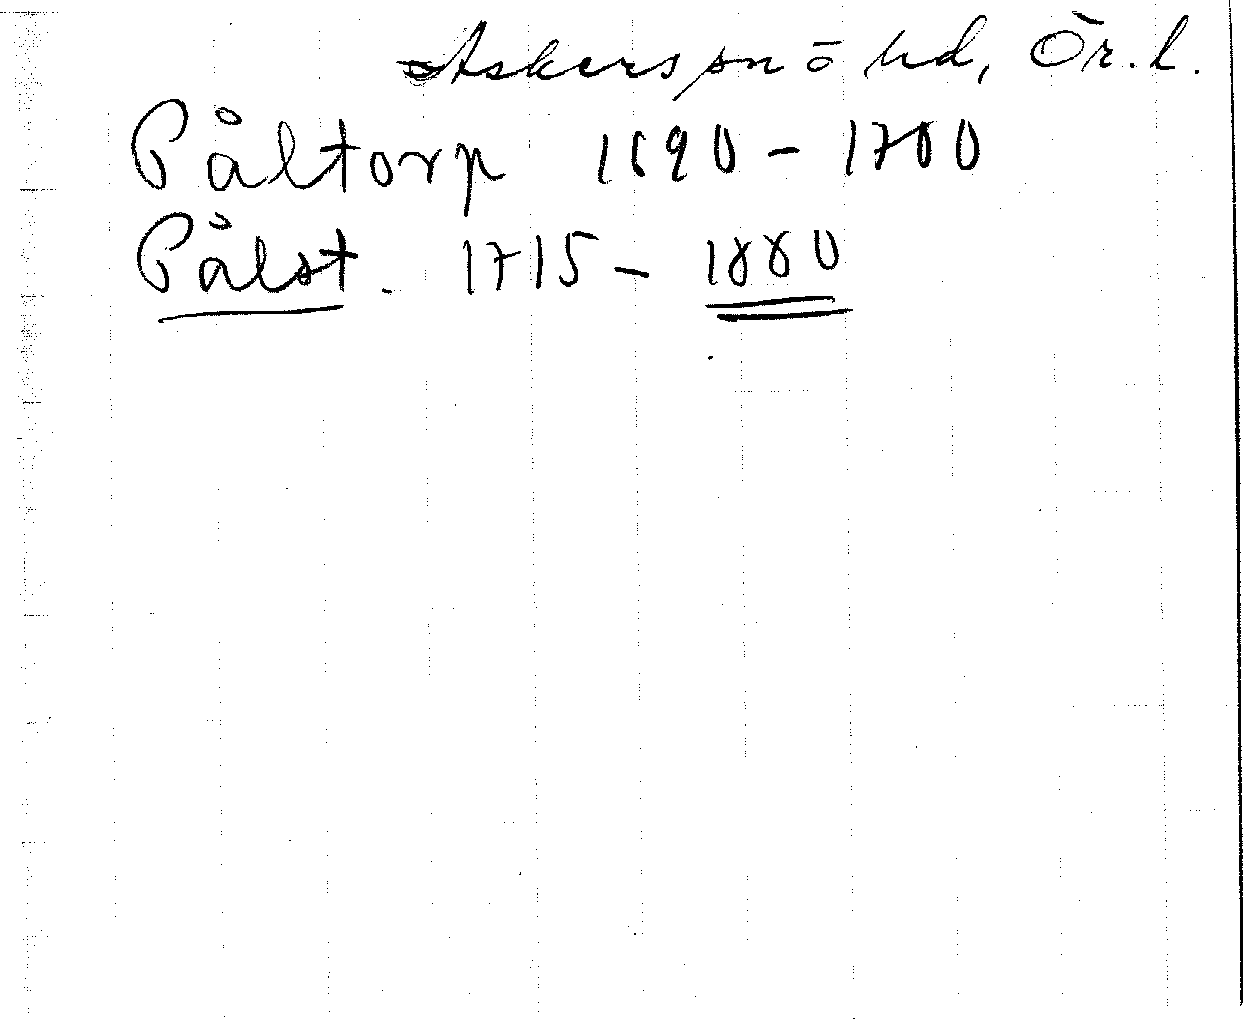 Askers sn = o hd, Ör. l.
Påltorp 1690 - 1700
Pålst. 1715 - 1880